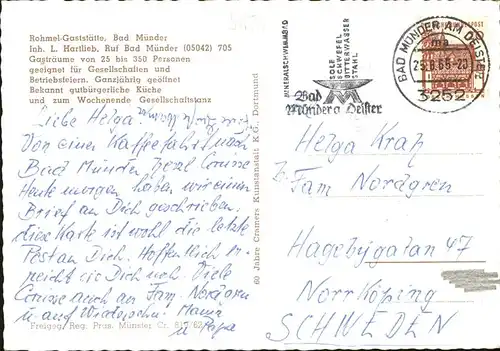 Rohmel-Gaststätte, Bad Münder
Inh. L. Hartlieb, Ruf Bad Münder (05042) 705
Gasträume von 25 bis 350 Personen
geeignet für Gesellschaften und
Betriebsfeiern. Ganzjährig geöffnet
Bekannt gutbürgerliche Küche
und zum Wochenende Gesellschaftstanz
Liebe Helga
Von einer Kaffeefahrt nach
Bad Münder herzl Grüsse
Heute morgen haben wir einen
Brief an Dich geschrieben.
diese Karte ist wohl die letzte
Post an Dich. Hoffentlich er-
reicht sie Dich noch. Viele
Grüsse auch an Fam. Nordgren
u auf Wiedersehn! Mama
u Papa
Freigeg. Reg. Präs. Münster Cr.
60 Jahre Cramers Kunstanstalt K.G., Dortmund
MINERALSCHWIMMBAD
SOLE
SCHWEFEL
BITTERWASSER
STAHL
Bad
Münder a Deister
BAD MÜNDER AM DEISTER
ma
3252
Helga Krap
b. Fam Nordgren
Hagebygatan 47
Norrköping
SCHWEDEN